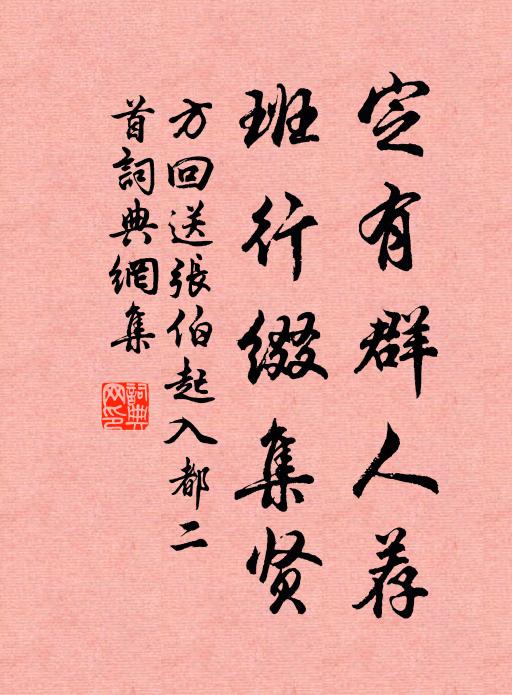 定有群人荐
班行缀集贤
方回送張伯起入都二
首詞典網集
詞典
网印